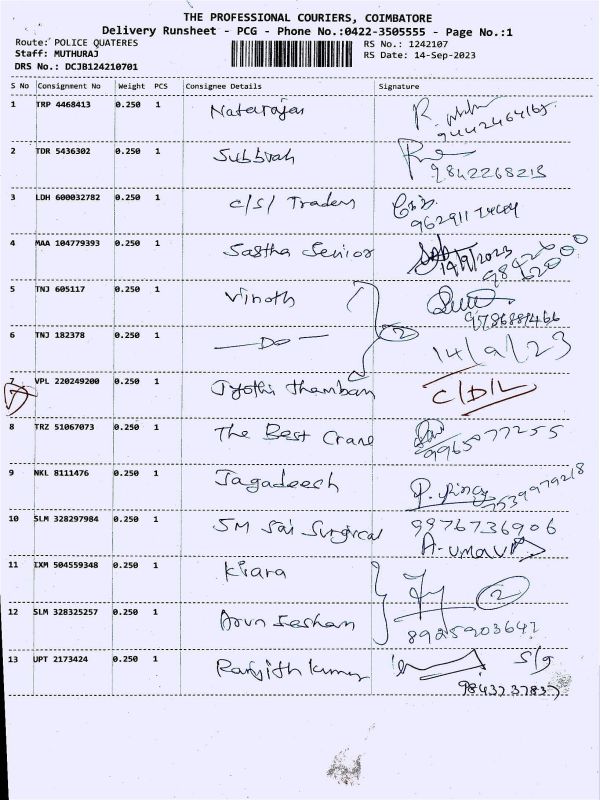 THE PROFESSIONAL COURIERS, COIMBATORE
Delivery Runsheet - PCG - Phone No.:0422-3505555 - Page No.:1
Route: POLICE QUATERES RS No.: 1242107
Staff: MUTHURAJ RS Date: 14-Sep-2023
DRS No.: DCJB124210701
S No Consignment No Weight PCS Consignee Details Signature
1 TRP 4468413 0.250 1 Natarajan R.
9442464165
2 TDR 5436302 0.250 1 Subbiah
9842268215
3 LDH 600032782 0.250 1 C/S/ Traders
4 MAA 104779393 0.250 1 Sastha Senior
14/9/2023
5 TNJ 605117 0.250 1 Vinoth
6 TNJ 182378 0.250 1 —Do— 2 14/9/23
7 VPL 220249200 0.250 1 Jyothi Thamban C/D/L
8 TRZ 51067073 0.250 1 The Best Crane
9965077255
9 NKL 8111476 0.250 1 Jagadeesh
7539979218
10 SLM 328297984 0.250 1 SM Sai Surgical 9976736906
A-UMA
11 IXM 504559348 0.250 1 Kiara 2
12 SLM 328325257 0.250 1 Arun Seshan
8925903642
13 UPT 2173424 0.250 1 Ranjith Kumar S/g
9843737837